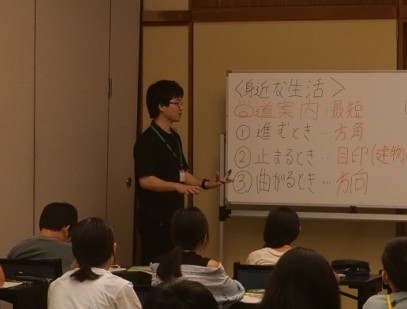 <身近な生活>
道案内:最短
① 進むとき…方角
② 止まるとき…目印(建物)
③ 曲がるとき…方向